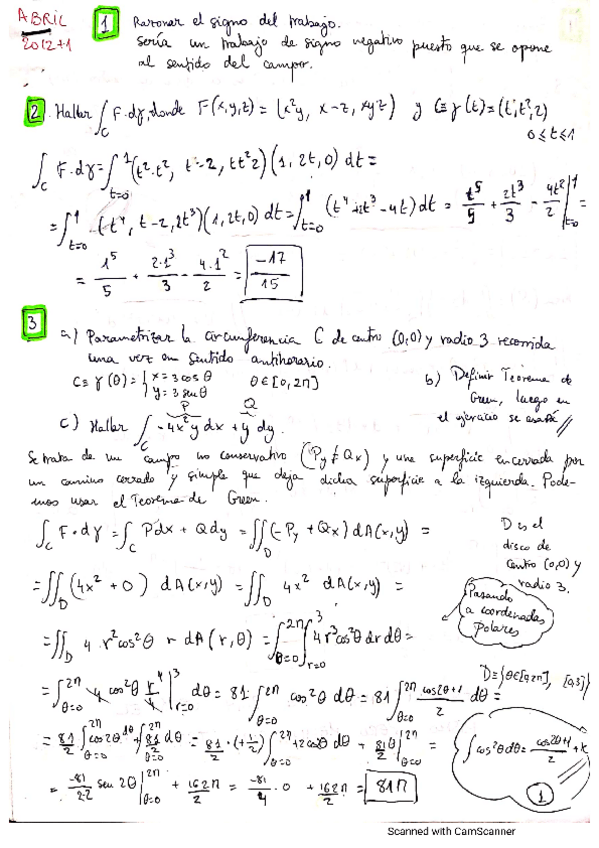 ABRIL
2012+1
1 Razonar el signo del trabajo.
sería un trabajo de signo negativo puesto que se opone
al sentido del campo.
2. Hallar ∫_C F·dγ, donde F(x,y,z) = (x²y, x-z, xyz) y C≡γ(t)=(t,t²,2)
0≤t≤1
∫_C F·dγ = ∫_{t=0}^1 (t²·t², t-2, tt²2)(1,2t,0) dt =
= ∫_{t=0}^1 (t⁴, t-2, 2t³)(1,2t,0) dt = ∫_{t=0}^1 (t⁴+2t²-4t) dt = t⁵/5 + 2t³/3 - 4t²/2 |_{t=0}^1 =
= 1⁵/5 + 2·1³/3 - 4·1²/2 = -17/15
3 a) Parametrizar la circunferencia C de centro (0,0) y radio 3 recorrida
una vez en sentido antihorario.
C≡γ(θ)={x=3cosθ
y=3senθ
θ∈[0,2π]
b) Definir Teorema de
Green, luego en
el ejercicio se usará //
c) Hallar ∫ -4x²y dx + y dy
P Q
Se trata de un campo no conservativo (Py≠Qx) y una superficie encerrada por
un camino cerrado y simple que deja dicha superficie a la izquierda. Pode-
mos usar el Teorema de Green.
∫_C F·dγ = ∫_C Pdx + Qdy = ∬_D (-Py + Qx) dA(x,y) =
D es el
disco de
centro (0,0) y
radio 3.
= ∬_D (4x² + 0) dA(x,y) = ∬_D 4x² dA(x,y) =
Pasando
a coordenadas
Polares
= ∬_D 4 r²cos²θ r dA(r,θ) = ∫_{θ=0}^{2π} ∫_{r=0}^3 4r³cos²θ dr dθ =
D={θ∈[0,2π], [0,3]}
= ∫_{θ=0}^{2π} 4 cos²θ r⁴/4 |_{r=0}^3 dθ = 81·∫_{θ=0}^{2π} cos²θ dθ = 81 ∫_{θ=0}^{2π} cos2θ+1/2 dθ =
= 81/2 ∫_{θ=0}^{2π} cos2θ dθ + ∫_{θ=0}^{2π} 81/2 dθ = 81/2·(+1/2) ∫_{θ=0}^{2π} +2cosθ dθ + 81/2 θ |_{θ=0}^{2π} =
∫cos²θdθ = cos2θ+1/2 + k
1
= -81/2·2 sen 2θ |_{θ=0}^{2π} + 162π/2 = -81/4 · 0 + 162π/2 = 81π
Scanned with CamScanner